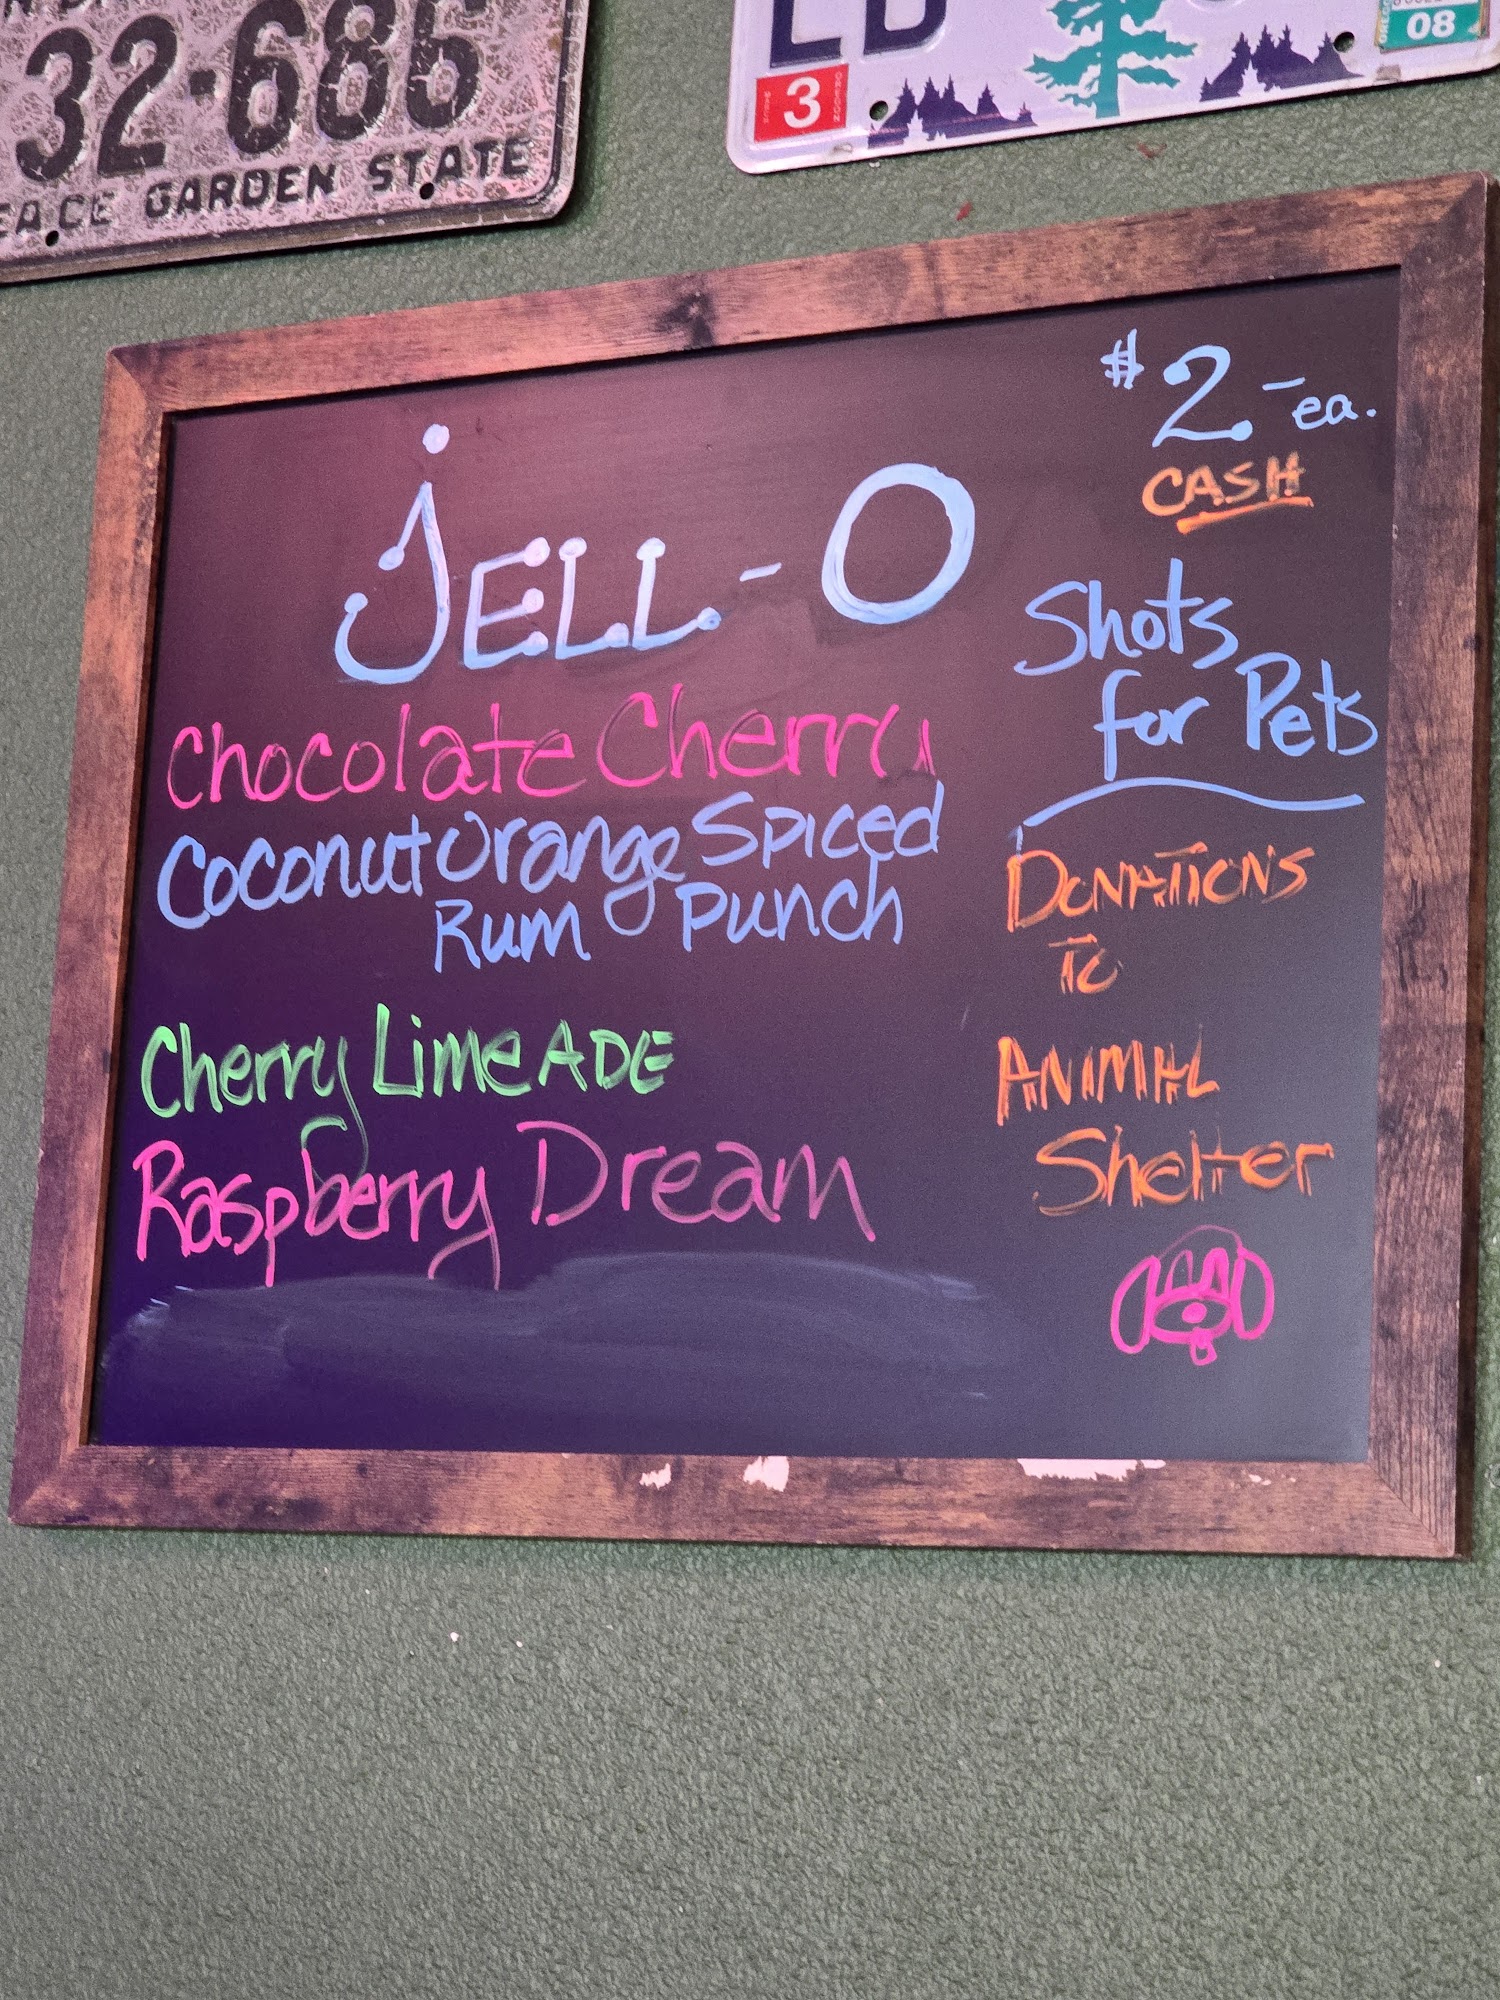 32-685
PEACE GARDEN STATE
3
OREGON
08
$2- ea.
CASH
JELL-O
Shots
for Pets
Chocolate Cherry
Coconut Orange Spiced
Rum Punch
Cherry LimeADE
Raspberry Dream
DONATIONS
TO
ANIMAL
Shelter